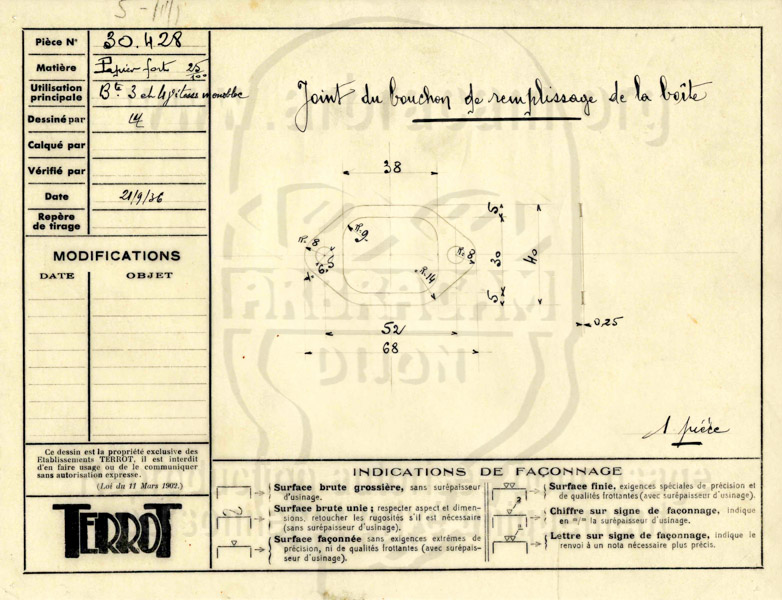 Pièce N° 30.428
Matière Papier fort 25/100
Utilisation principale Bte 3 et 4 vitesses monobloc
Dessiné par
Calqué par
Vérifié par
Date 21/9/36
Repère de tirage
MODIFICATIONS
DATE OBJET
Joint du bouchon de remplissage de la boîte
38
R.8
R.9
6.5
R.8
R.14
5
30
5
40
0,25
52
68
1 pièce
www.arbracam.org
ARBRACAM
DIJON
Ce dessin est la propriété exclusive des
Etablissements TERROT, il est interdit
d'en faire usage ou de le communiquer
sans autorisation expresse.
(Loi du 11 Mars 1902.)
TERROT
INDICATIONS DE FAÇONNAGE
Surface brute grossière, sans surépaisseur
d'usinage.
Surface brute unie ; respecter aspect et dimen-
sions, retoucher les rugosités s'il est nécessaire
(sans surépaisseur d'usinage).
Surface façonnée sans exigences extrêmes de
précision, ni de qualités frottantes (avec surépais-
seur d'usinage).
Surface finie, exigences spéciales de précision et
de qualités frottantes (avec surépaisseur d'usinage).
Chiffre sur signe de façonnage, indique
en m/m la surépaisseur d'usinage.
Lettre sur signe de façonnage, indique le
renvoi à un nota nécessaire plus précis.